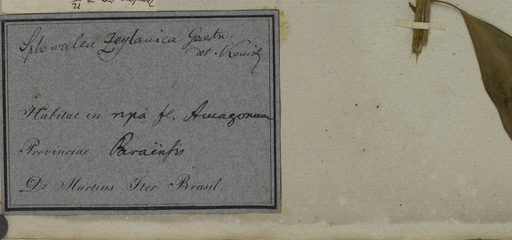 Sphenoclea Zeylanica Gaertn.
et Konig
Habitat in ripa fl. Amazonum
Provinciae Paraënsis
Dr. Martius Iter Brasil.